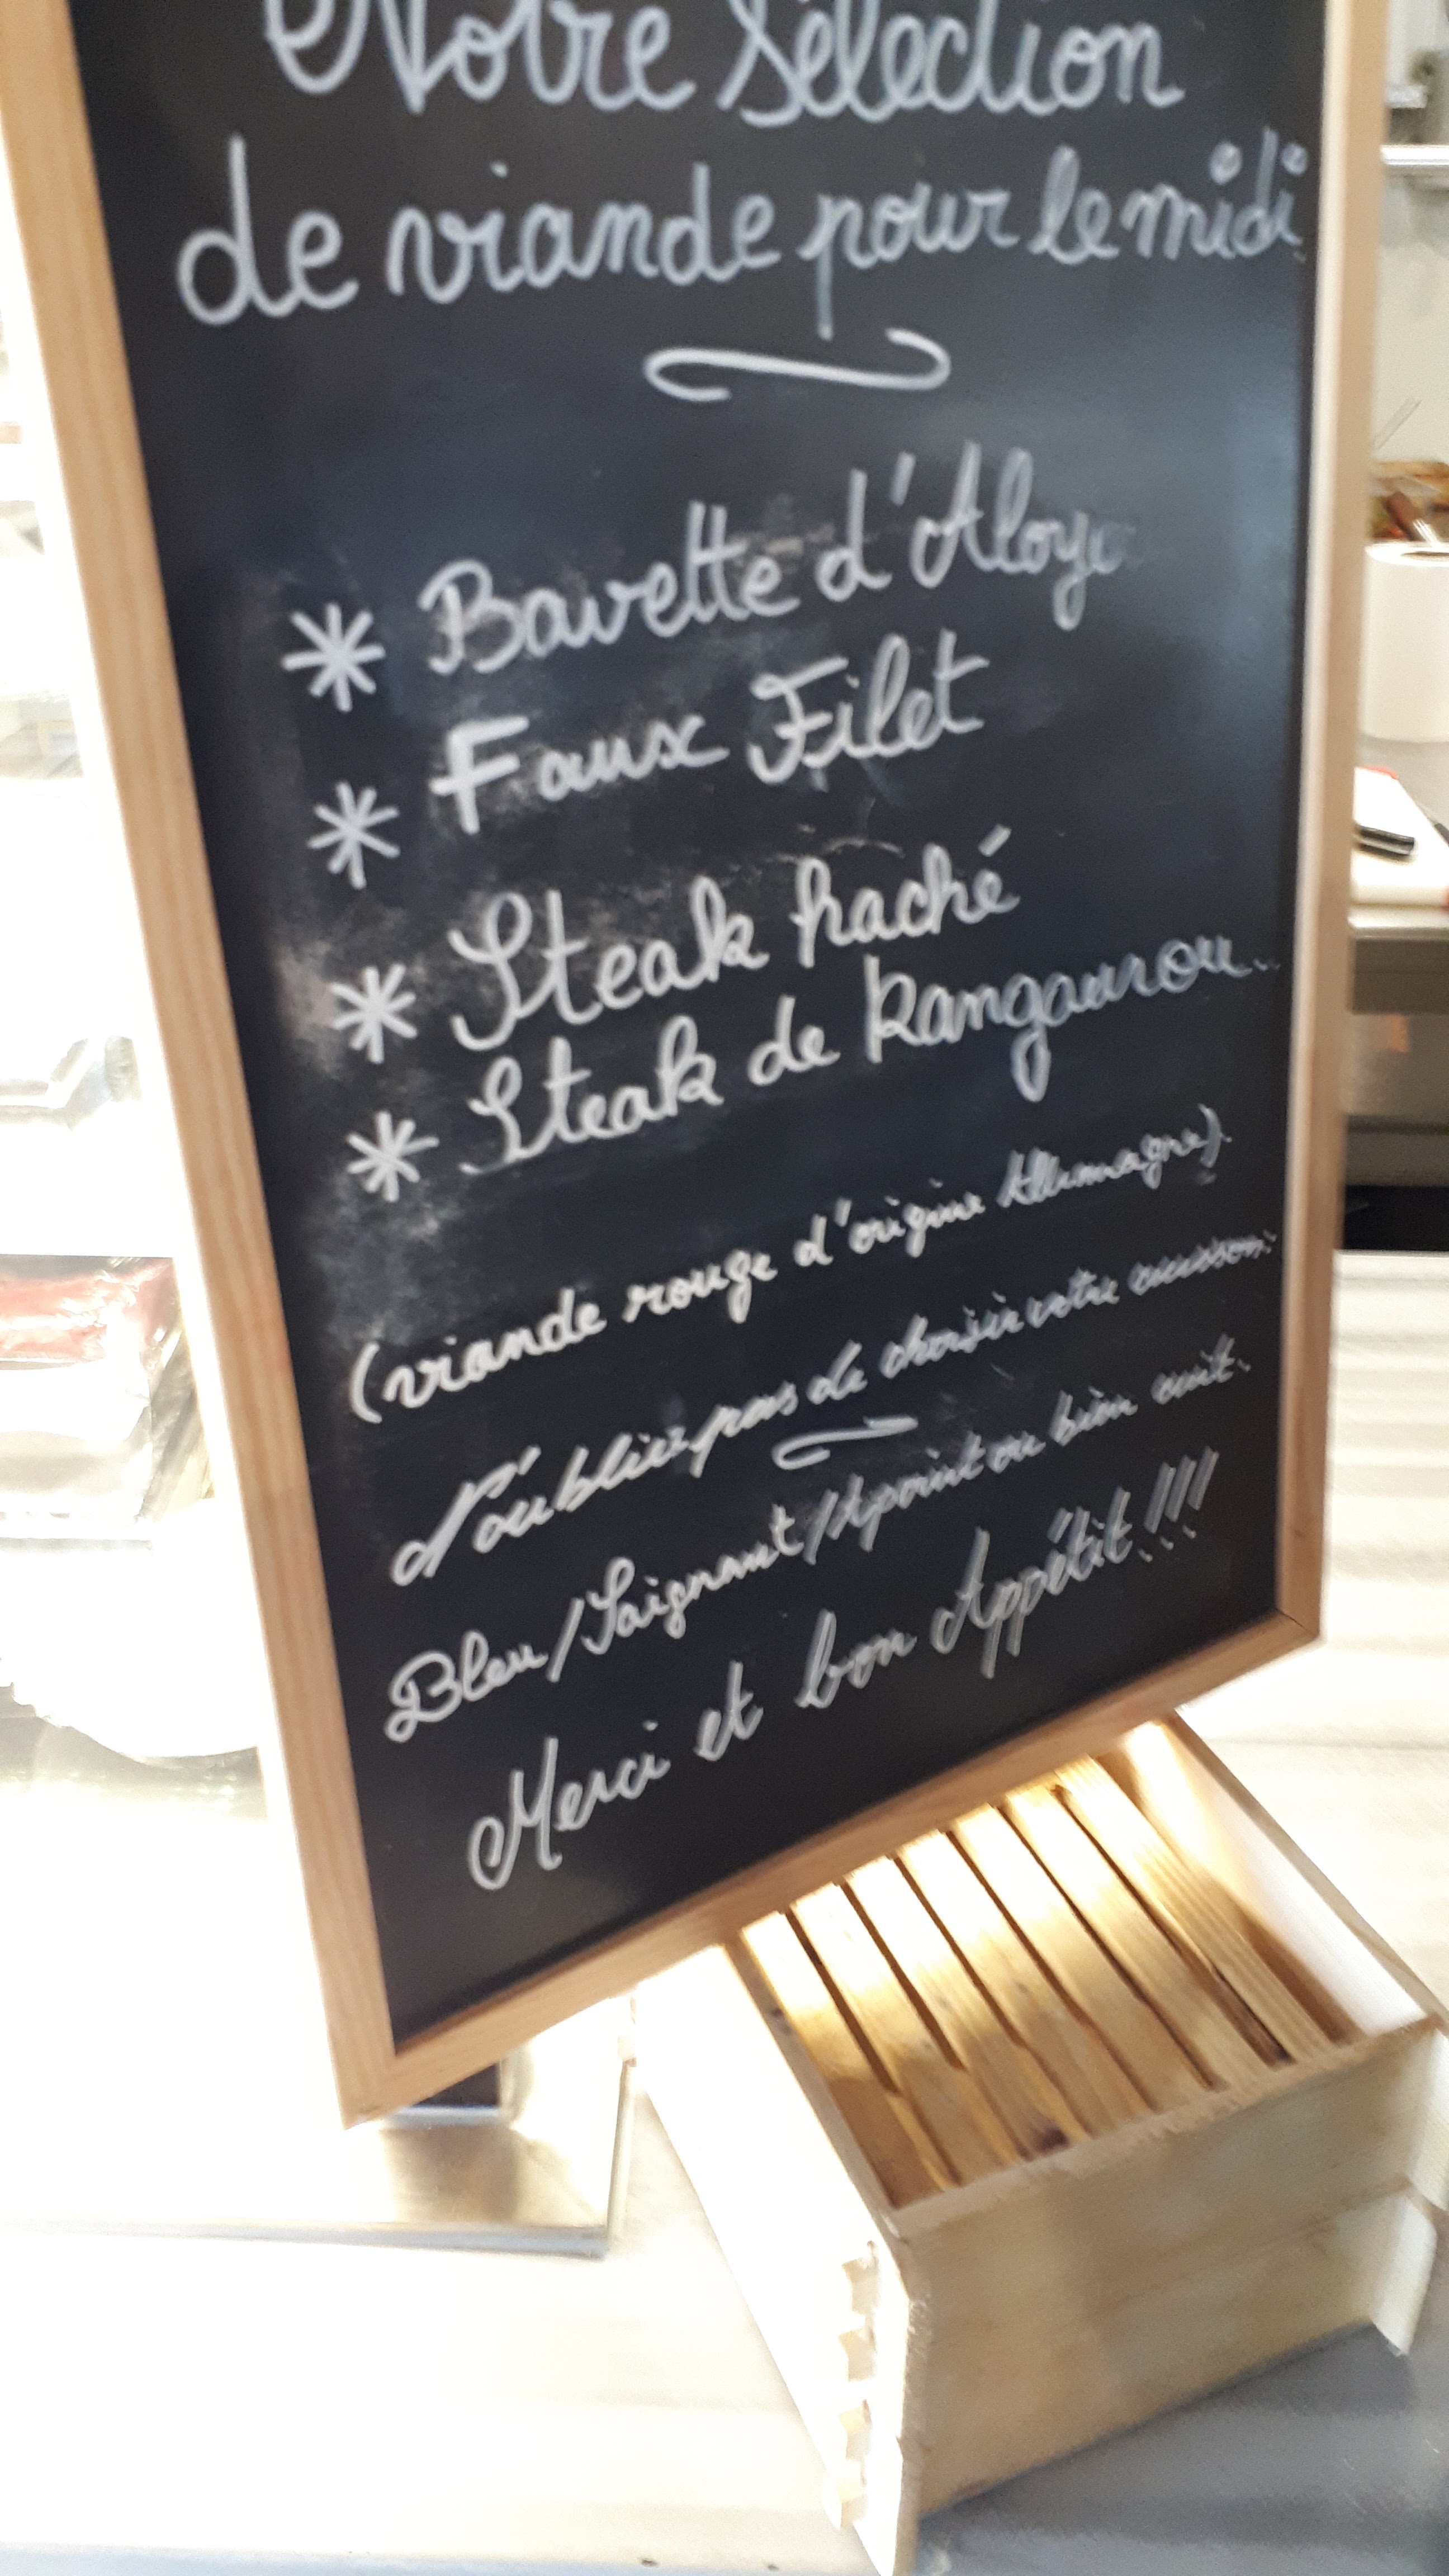 Notre Sélection
de viande pour le midi
* Bavette d'Aloy
* Faux Filet
* Steak haché
* Steak de Kangourou
(viande rouge d'origine Allemagne).
N'oubliez pas de choisir votre cuisson:
Bleu/Saignant/A point ou bien cuit.
Merci et bon Appétit!!!